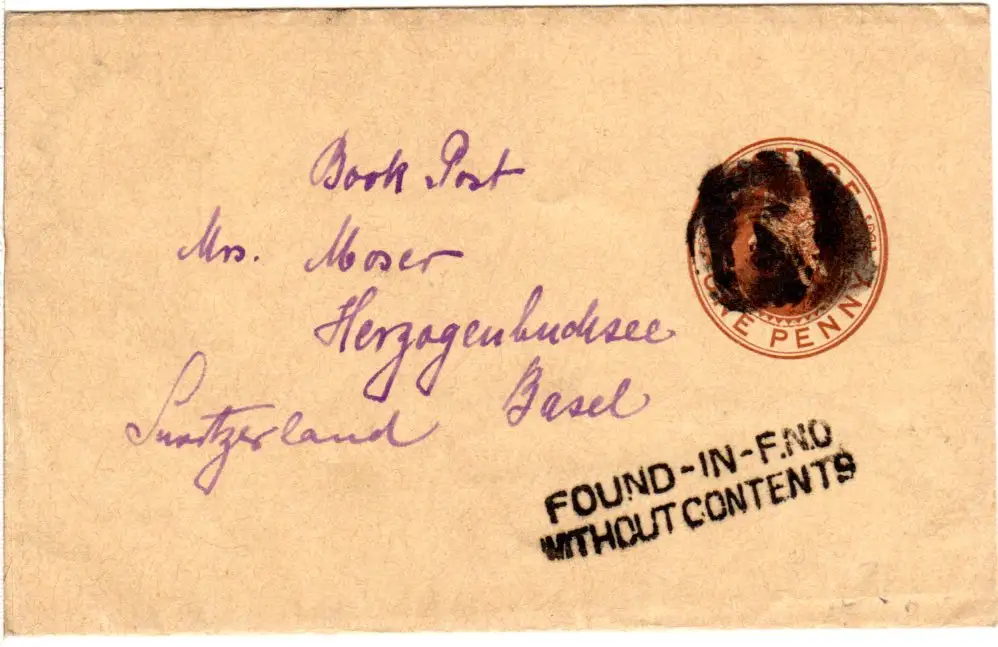 Book Post
Mrs. Moser
Herzogenbuchsee
Switzerland Basel
POSTAGE
ONE PENNY
FOUND-IN-F.N.O
WITHOUT CONTENTS